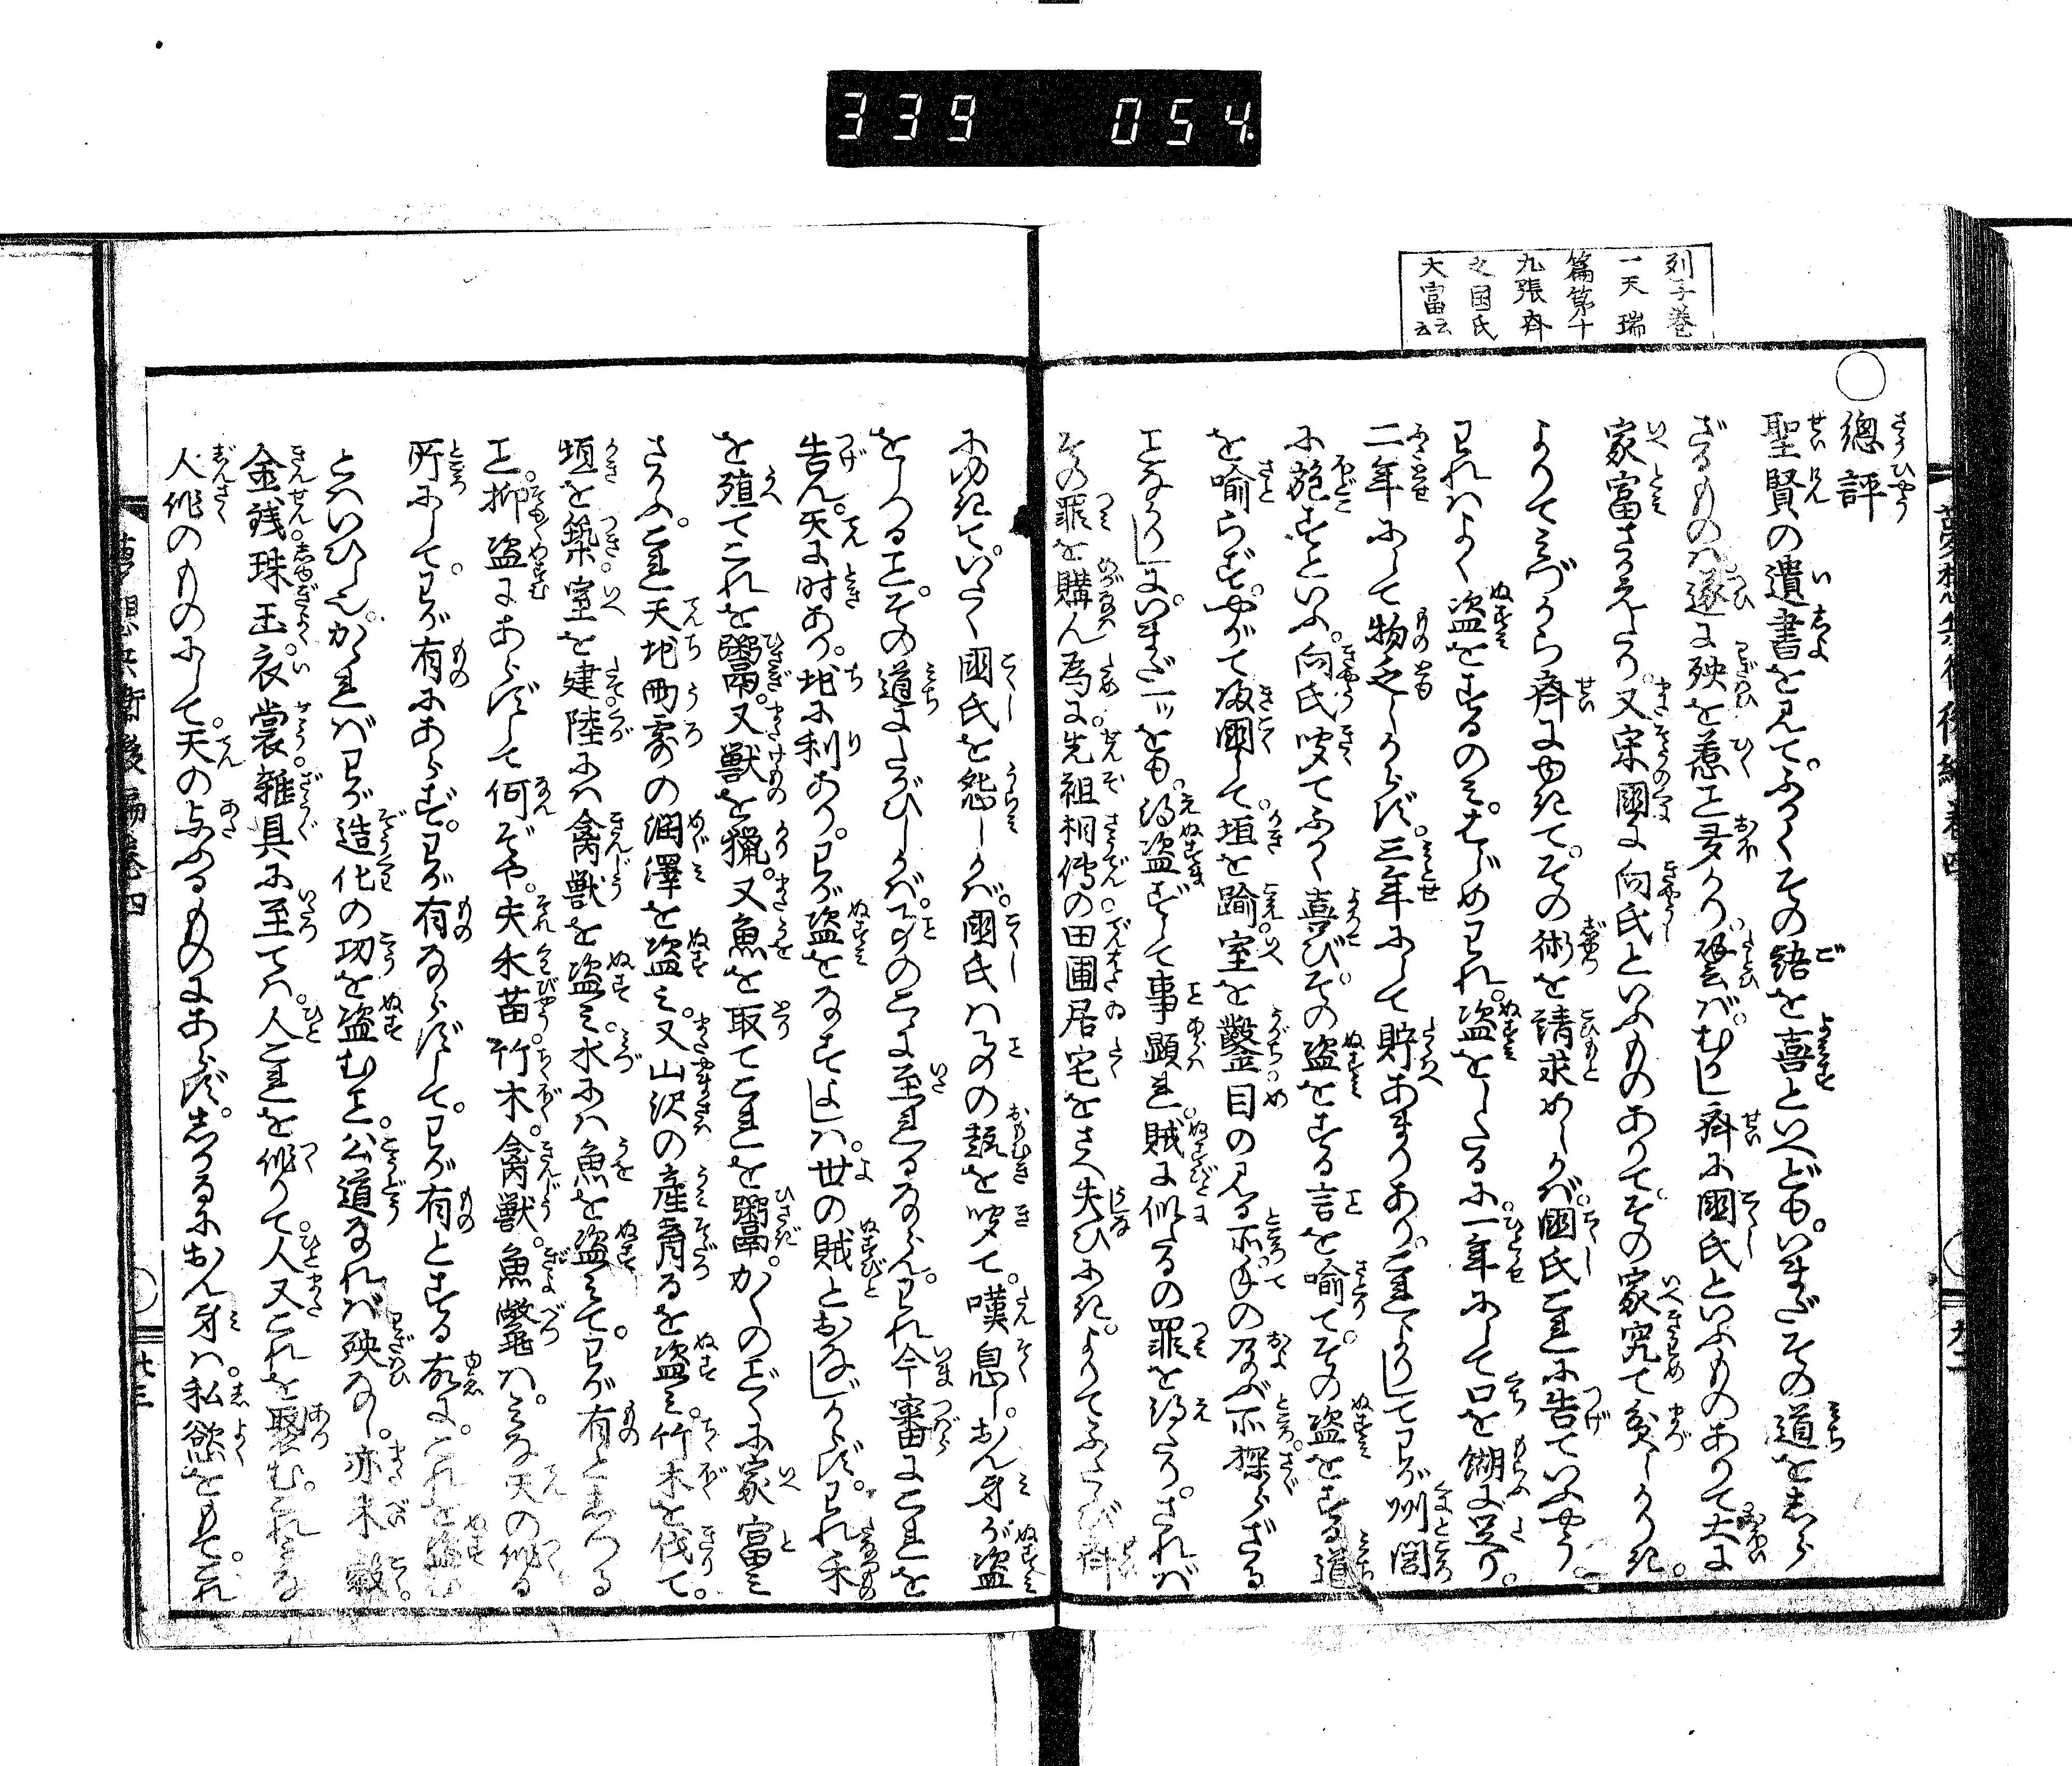 339 054
列子巻
一天瑞
篇第十
九張斉
之国氏
大富云云
總評
聖賢の遺書を見て。ふかくその語を喜といへども。いまだその道をしら
ざるものは遂に殃を惹こと多かり。譬ば。むかし斉に國氏といふものありて大に
家富さかえたり。又宋國に向氏といふものありて。その家究て貧しかりき。
よりてみづから斉にゆきて。その術を請求めしかば。國氏これに告ていふやう。
われはよく盗をするのみ。はじめわれ。盗をしたるに一年にして口を餬に足り。
二年にして物乏しからず。三年にして貯あまりあり。これよりしてわが州閭
に施すといふ。向氏咬てふかく喜び。その盗をする言を喩て。その盗をする道
を喩らず。やがて皈國して。垣を踰室を鑿目の見る所。手の及ぶ所探らざる
ことなかりしに。いまだ一ッをも。得盗ずして事顕れ。賊に似たるの罪を得たり。されば
その罪を購ん為に。先祖相傳の田圃居宅をさへ失ひにき。よりてふたゝび斉
にゆきて。いたく國氏を怨しかば。國氏は事の趣を咬て。嘆息し。おん身が盗
をしつること。その道にたがひしかば。事のこゝに至れるならん。われ今審にこれを
告ん。天に時あり。地に利あり。わが盗をなすよしは。世の賊とおなじからず。われ禾
を殖てこれを鬻。又獣を獵。又魚を取てこれを鬻。かくのごとくに家富み
さかふ。これ天地雨露の潤澤を盗み。又山沢の産育るを盗み。竹木を伐て。
垣を築。室を建陸には禽獣を盗み。水には魚を盗みて。わが有としつる
こと。抑盗にあらずして何ぞや。夫禾苗。竹木。禽獣。魚鼈は。みな天の作る
所にして。わが有にあらず。わが有ならずして。わが有とする故に。これを盗む
とはいひしなり。かゝればわが造化の功を盗むこと。公道なれば殃なし。亦米穀。
金銭珠玉。衣裳雑具に至ては。人これを作りて人又これを聚む。これみな
人作のものにして。天の与ふるものにあらず。しかるにおん身は。私慾をもて。これ